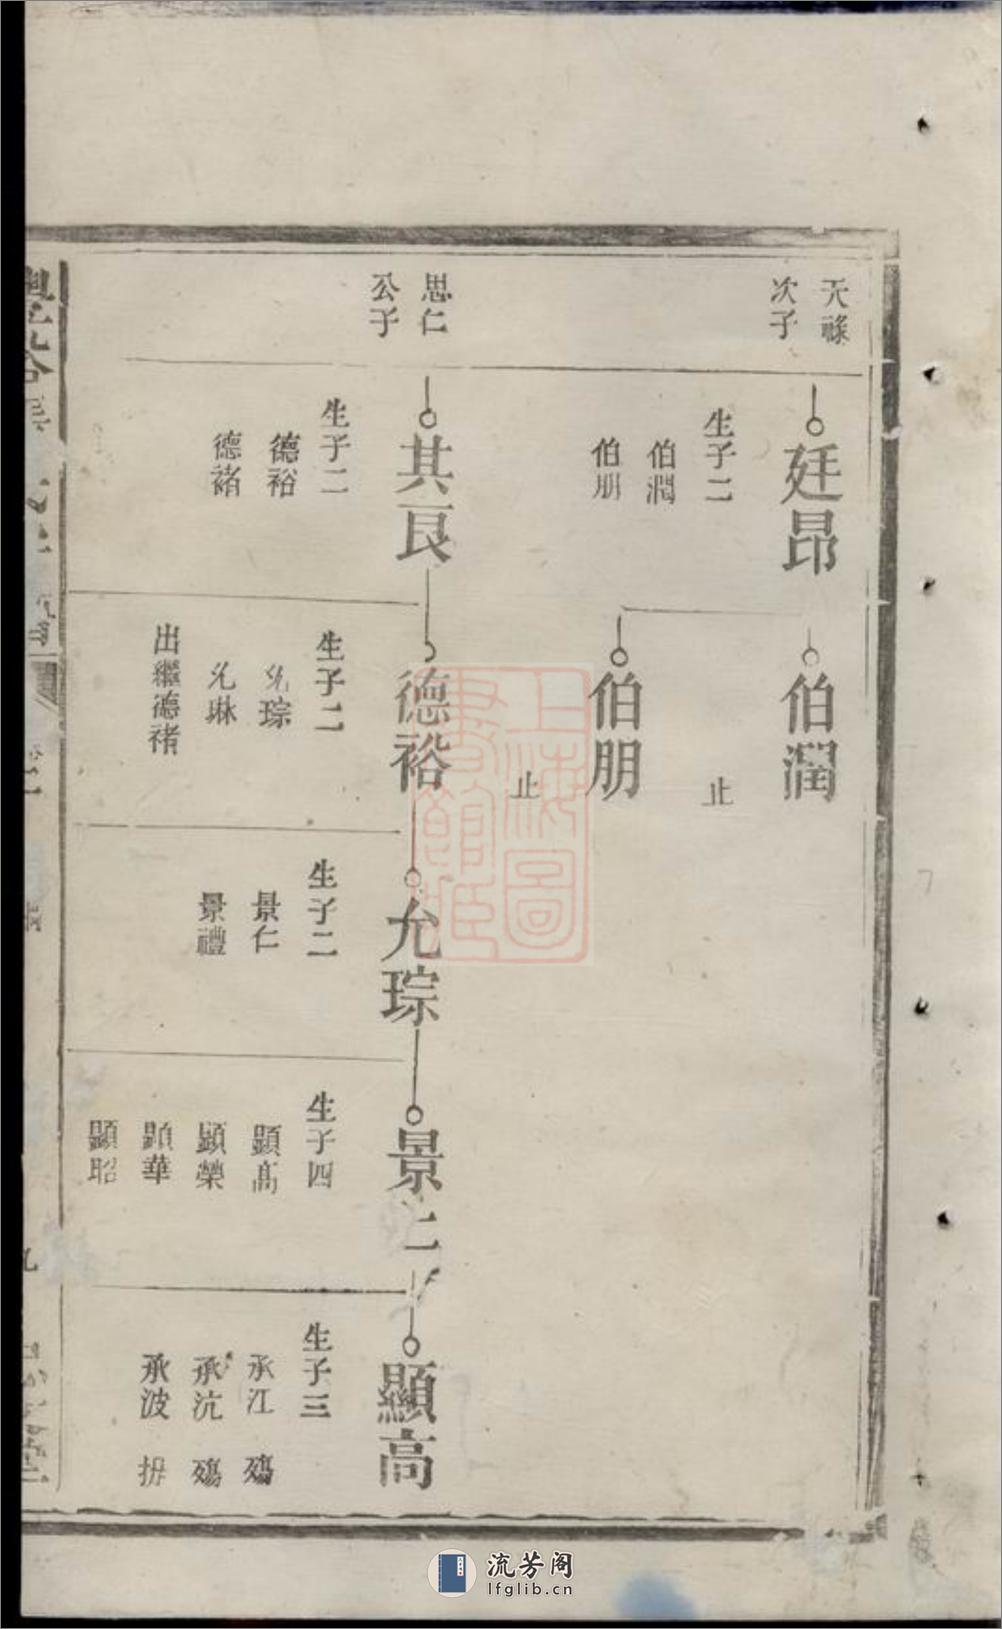 天祿
次子
廷昂
生子二
伯潤
伯朋
伯潤
止
伯朋
止
思仁
公子
其良
生子二
德裕
德褚
德裕
生子二
允琮
允琳
出繼德褚
允琮
生子二
景仁
景禮
景仁
生子四
顯高
顯榮
顯華
顯昭
顯高
生子三
承江 殤
承沆 殤
承波 拚
上海圖
書館藏
流芳阁
lfglib.cn